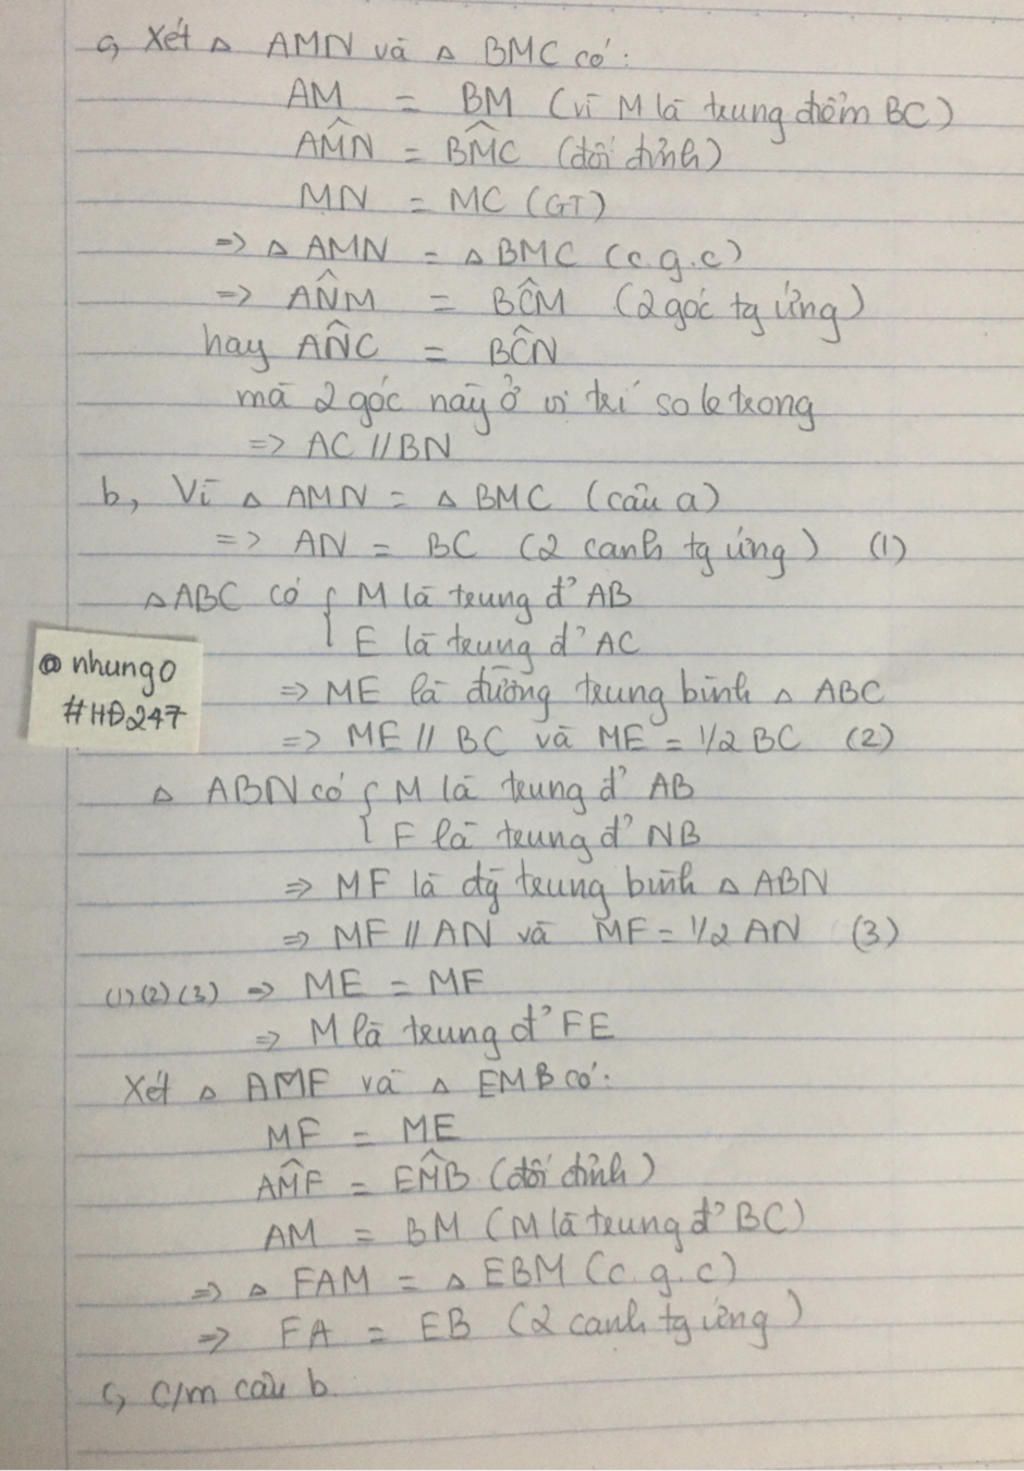 a, Xét △ AMN và △ BMC có:
AM = BM (vì M là trung điểm BC)
AM̂N = BM̂C (đối đỉnh)
MN = MC (GT)
=> △ AMN = △ BMC (c.g.c)
=> AN̂M = BĈM (2 góc tg ứng)
hay AN̂C = BĈN
mà 2 góc này ở vị trí so le trong
=> AC // BN
b, Vì △ AMN = △ BMC (câu a)
=> AN = BC (2 cạnh tg ứng) (1)
△ABC có { M là trung đ' AB
E là trung đ' AC
@nhung0
#HĐ247
=> ME là đường trung bình △ ABC
=> ME // BC và ME = 1/2 BC (2)
△ ABN có { M là trung đ' AB
F là trung đ' NB
=> MF là đg trung bình △ ABN
=> MF // AN và MF = 1/2 AN (3)
(1)(2)(3) => ME = MF
=> M là trung đ' FE
Xét △ AMF và △ EMB có:
MF = ME
AM̂F = EM̂B (đối đỉnh)
AM = BM (M là trung đ' BC)
=> △ FAM = △ EBM (c.g.c)
=> FA = EB (2 cạnh tg ứng)
c, c/m câu b